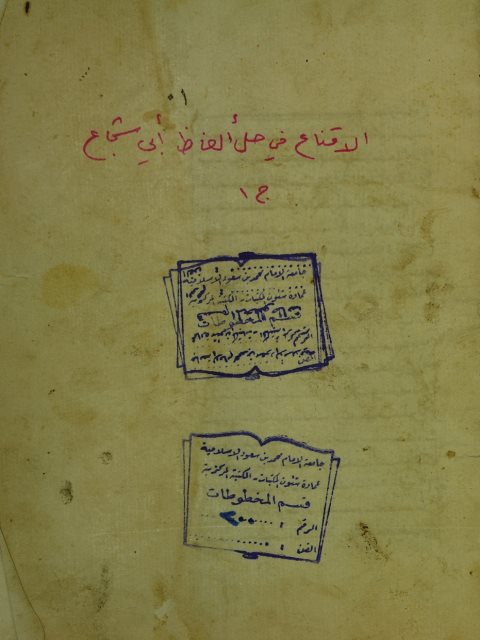 الاقناع في حل ألفاظ أبي شجاع
ج ١
جامعة الامام محمد بن سعود الاسلامية
عمادة شئون المكتبات - المكتبة المركزية
قسم المخطوطات
جامعة الامام محمد بن سعود الاسلامية
عمادة شئون المكتبات - المكتبة المركزية
قسم المخطوطات
الرقم : ٢٠٠
الفن :